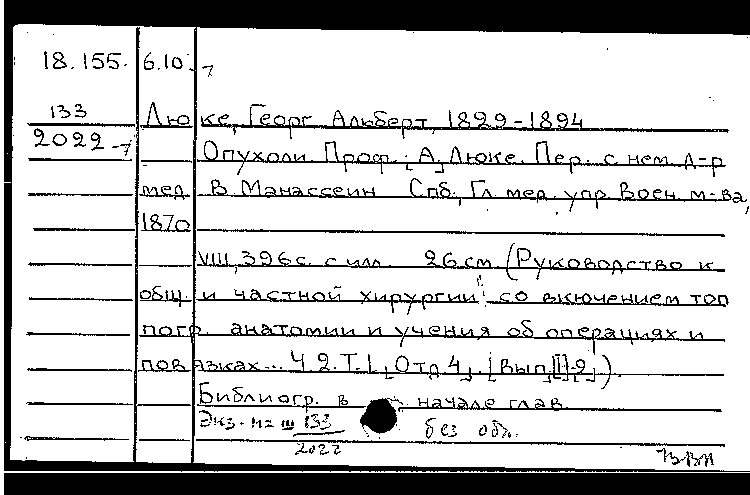 18.155. 6.10.7
133
2022-7
Люке, Георг Альберт, 1829-1894
Опухоли. Проф. [А] Люке. Пер. с нем. д-р
мед. В. Манассеин Спб., Гл. мед. упр. Воен. м-ва,
1870
VIII, 396 с. с илл. 26 см. (Руководство к
общ. и частной хирургии со включением топ
погр. анатомии и учения об операциях и
повязках... Ч. 2. Т. I, [Отд. 4]. [Вып.] [1]-2]).
Библиогр. в начале глав.
Экз. № Ш 133
2022
без обл.